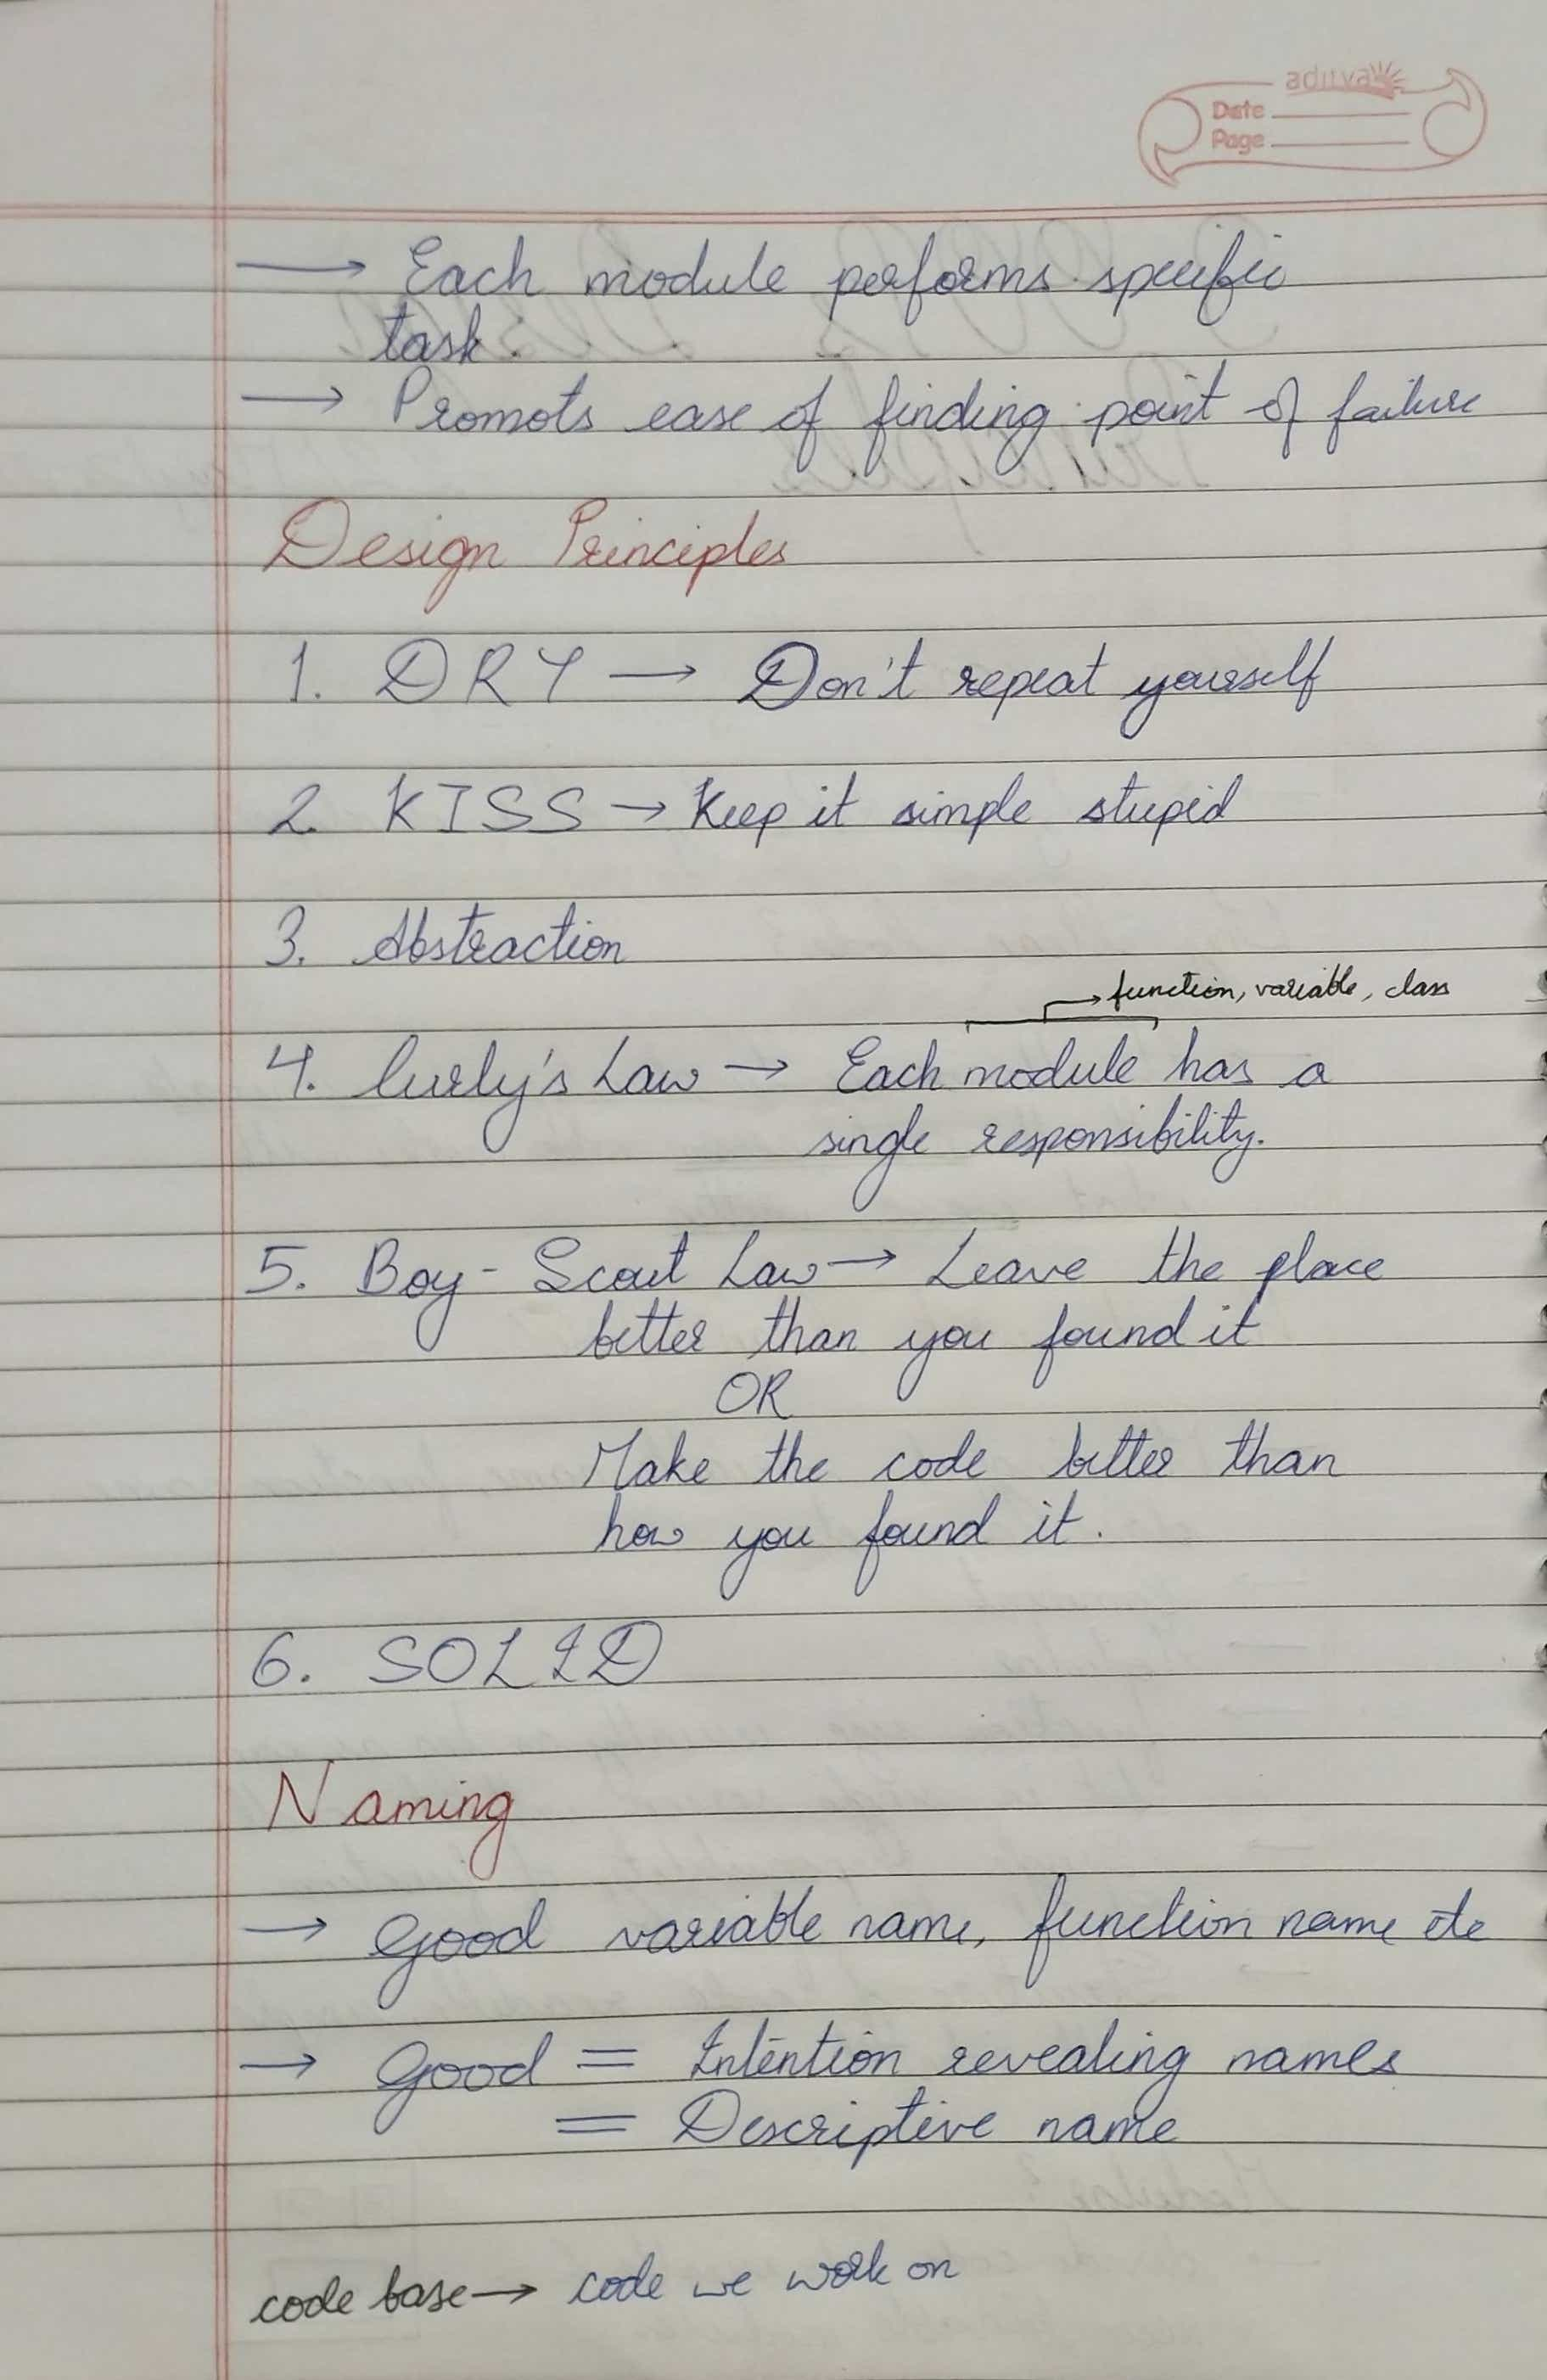 aditya
Date
Page
→ Each module performs specific
task.
→ Promots ease of finding point of failure
Design Principles
1. DRY → Don't repeat yourself
2. KISS → Keep it simple stupid
3. Abstraction
→ function, variable, class
4. Curly's Law → Each module has a
single responsibility.
5. Boy-Scout Law → Leave the place
better than you found it
OR
Make the code better than
how you found it.
6. SOLID
Naming
→ Good variable name, function name etc
→ Good = Intention revealing names
= Descriptive name
code base → code we work on